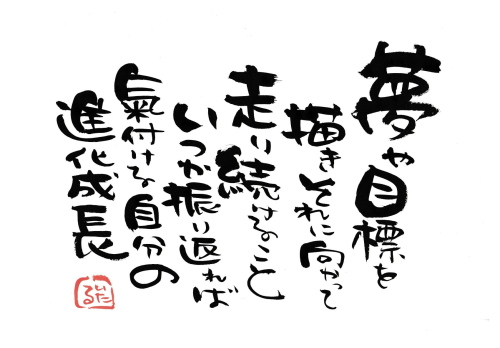 夢や目標を
描きそれに向かって
走り続けること
いつか振り返れば
氣付ける自分の
進化成長
いたる